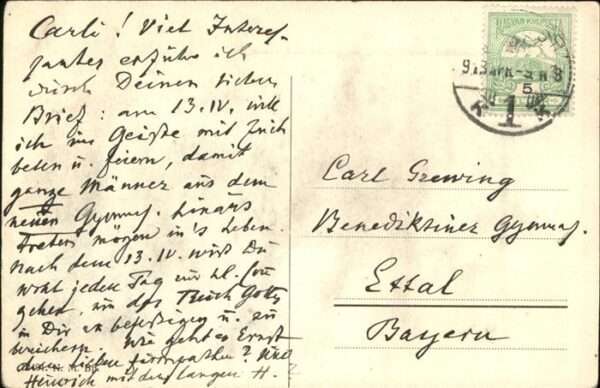 Carli! Viel Interes-
santes erfuhr ich
durch Deinen lieben
Brief: am 13.IV. will
ich im Geiste mit Euch
beten u. feiern, damit
ganze Männer aus dem
neuen Gymnas. hinaus
treten mögen in's Leben.
Nach dem 13.IV. wirst Du
wohl jeden Tag zur hl.
gehen, um das Reich Gottes
in Dir zu befestigen u. zu
bereichern. Wie geht es Ernst
lieben ? Und
Heinrich mit dem langen H.?
MAGYAR KIR. POSTA
913
5
1
Carl Grewing
Benediktiner Gymnas.
Ettal
Bayern